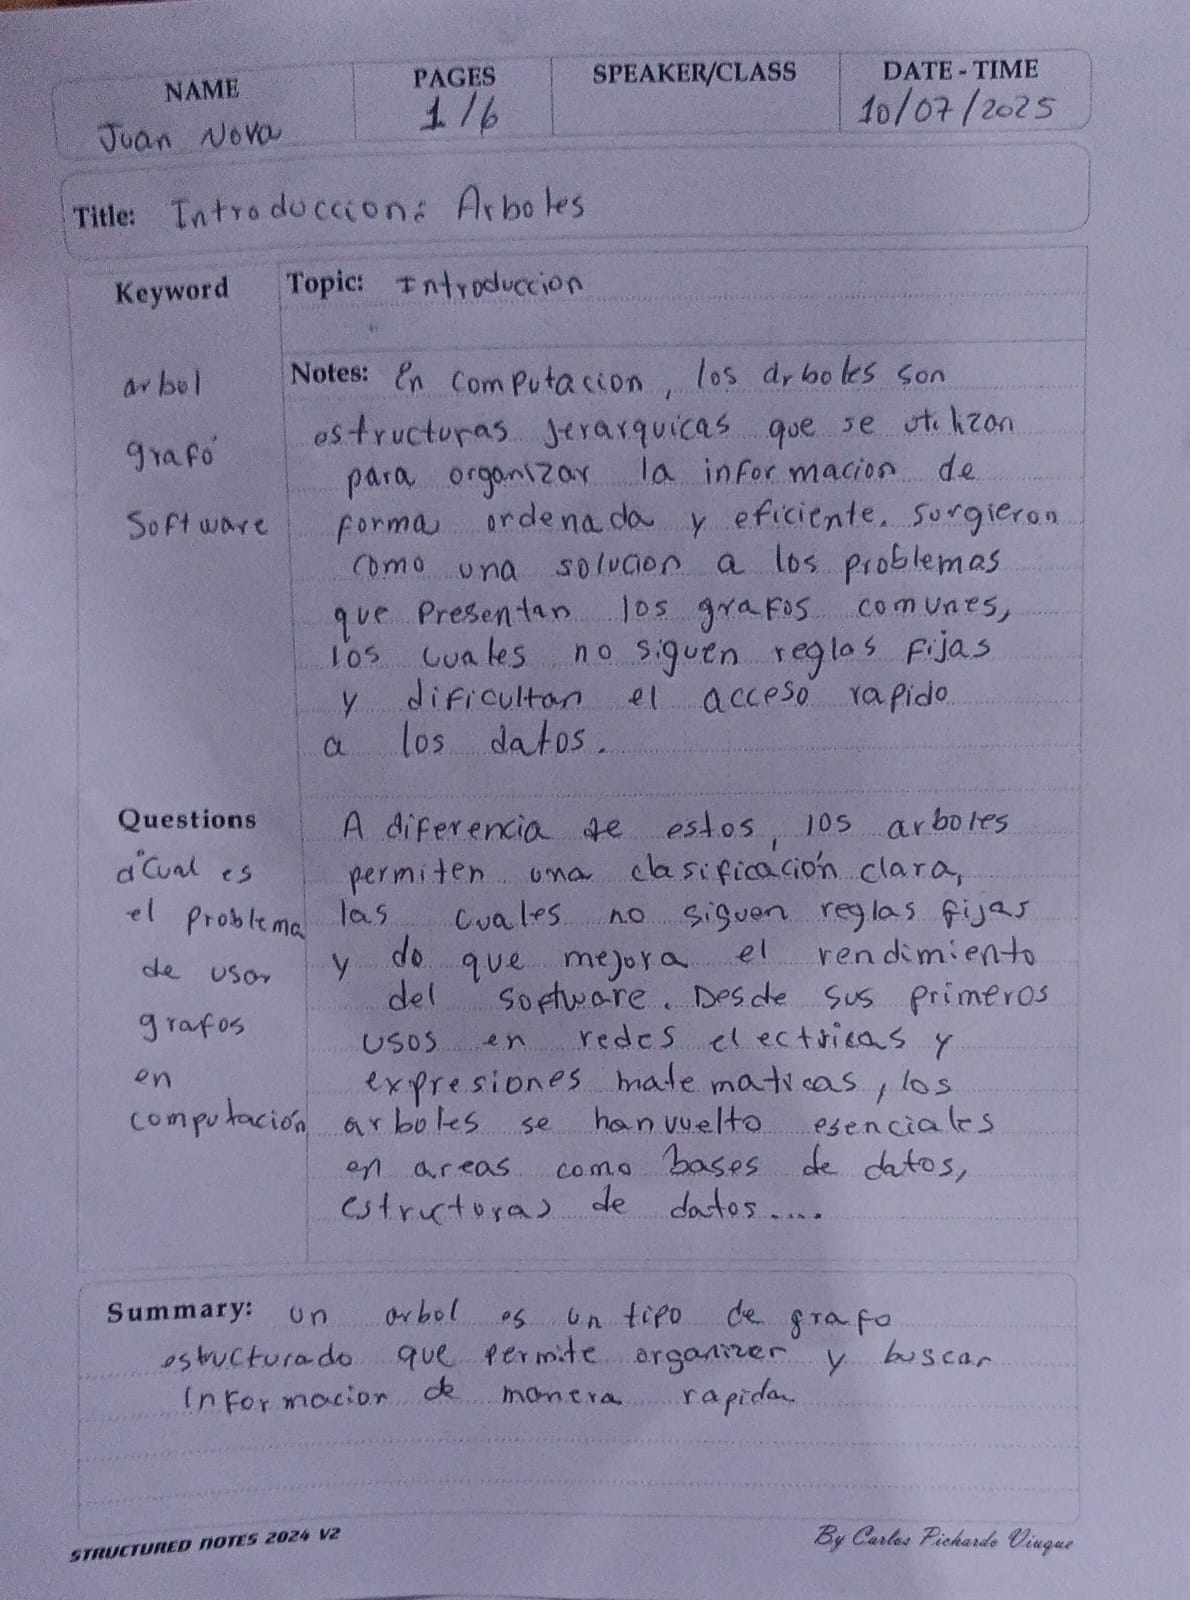 NAME
PAGES
SPEAKER/CLASS
DATE - TIME
Juan Nova
1/6
10/07/2025
Title: Introduccion: Arboles
Keyword
Topic: Introduccion
arbol
grafo
Software
Notes: En computacion, los arboles son
estructuras jerarquicas que se utilizan
para organizar la informacion de
forma ordenada y eficiente. surgieron
como una solucion a los problemas
que presentan los grafos comunes,
los cuales no siguen reglas fijas
y dificultan el acceso rapido
a los datos.
Questions
cual es
el problema
de usar
grafos
en
computación
A diferencia de estos, los arboles
permiten una clasificación clara,
las cuales no siguen reglas fijas
y do que mejora el rendimiento
del software. Desde sus primeros
usos en redes electricas y
expresiones matematicas, los
arboles se han vuelto esenciales
en areas como bases de datos,
estructuras de datos....
Summary: un arbol es un tipo de grafo
estructurado que permite organizer y buscar
informacion de manera rapida
STRUCTURED NOTES 2024 V2
By Carlos Pichardo Viuque